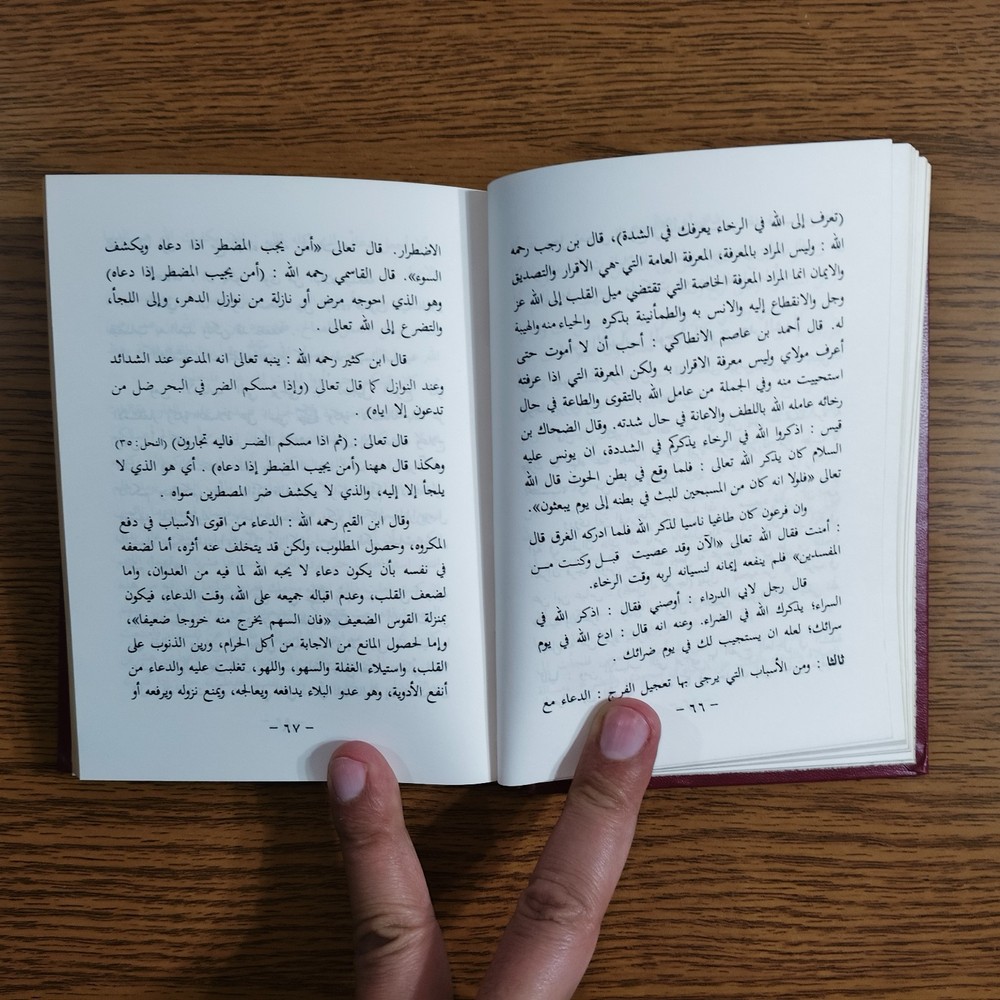 (تعرف إلى الله في الرخاء يعرفك في الشدة)، قال بن رجب رحمه
الله : وليس المراد بالمعرفة، المعرفة العامة التي هي الاقرار والتصديق
والايمان انما المراد المعرفة الخاصة التي تقتضي ميل القلب إلى الله عز
وجل والانقطاع إليه والانس به والطمأنينة بذكره والحياء منه والهيبة
له. قال أحمد بن عاصم الانطاكي : أحب أن لا أموت حتى
أعرف مولاي وليس معرفة الاقرار به ولكن المعرفة التي اذا عرفته
استحييت منه وفي الجملة من عامل الله بالتقوى والطاعة في حال
رخائه عامله الله باللطف والاعانة في حال شدته. وقال الضحاك بن
قيس : اذكروا الله في الرخاء يذكركم في الشددة، ان يونس عليه
السلام كان يذكر الله تعالى : فلما وقع في بطن الحوت قال الله
تعالى «فلولا انه كان من المسبحين للبث في بطنه إلى يوم يبعثون».
وان فرعون كان طاغيا ناسيا لذكر الله فلما ادركه الغرق قال
: أمنت فقال الله تعالى «الآن وقد عصيت قبل وكنت من
المفسدين» فلم ينفعه إيمانه لنسيانه لربه وقت الرخاء.
قال رجل لابي الدرداء : أوصني فقال : اذكر الله في
السراء؛ يذكرك الله في الضراء. وعنه انه قال : ادع الله في يوم
سرائك؛ لعله ان يستجيب لك في يوم ضرائك .
ثالثا : ومن الأسباب التي يرجى بها تعجيل الفرج : الدعاء مع
– ٦٦ –
الاضطرار. قال تعالى «أمن يجب المضطر اذا دعاه ويكشف
السوء». قال القاسمي رحمه الله : (أمن يجيب المضطر إذا دعاه)
وهو الذي احوجه مرض أو نازلة من نوازل الدهر، وإلى اللجأ،
والتضرع إلى الله تعالى .
قال ابن كثير رحمه الله : ينبه تعالى انه المدعو عند الشدائد
وعند النوازل كما قال تعالى (وإذا مسكم الضر في البحر ضل من
تدعون إلا اياه) .
قال تعالى : (ثم اذا مسكم الضر فاليه تجارون) (النحل: ٣٥)
وهكذا قال ههنا (أمن يجيب المضطر إذا دعاه) . أي هو الذي لا
يلجأ إلا إليه، والذي لا يكشف ضر المصطرين سواه .
وقال ابن القيم رحمه الله : الدعاء من اقوى الأسباب في دفع
المكروه، وحصول المطلوب، ولكن قد يتخلف عنه أثره، أما لضعفه
في نفسه بأن يكون دعاء لا يحبه الله لما فيه من العدوان، واما
لضعف القلب، وعدم اقباله جميعه على الله، وقت الدعاء، فيكون
بمنزلة القوس الضعيف «فان السهم يخرج منه خروجا ضعيفا»،
وإما لحصول المانع من الاجابة من أكل الحرام، ورين الذنوب على
القلب، واستيلاء الغفلة والسهو، واللهو، تغلبت عليه والدعاء من
أنفع الأدوية، وهو عدو البلاء يدافعه ويعالجه، ويمنع نزوله ويرفعه أو
– ٦٧ –